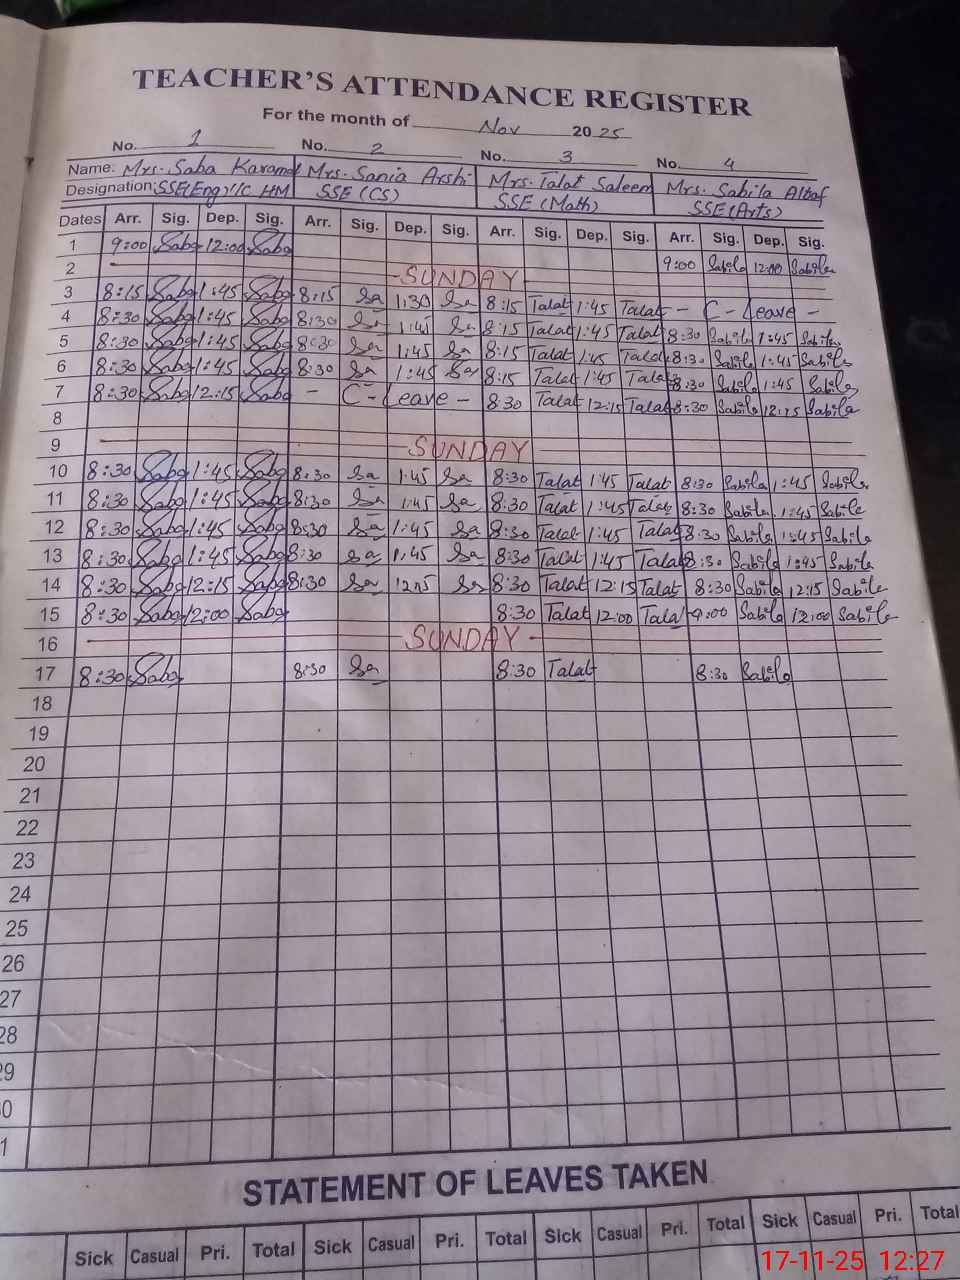 TEACHER'S ATTENDANCE REGISTER
For the month of Nov 2025
No. 1 No. 2 No. 3 No. 4
Name: Mrs. Saba Karamat Mrs. Sania Arshi Mrs. Talat Saleem Mrs. Sabila Altaf
Designation: SSE(Eng) I/C HM SSE (CS) SSE (Math) SSE (Arts)
Dates Arr. Sig. Dep. Sig. Arr. Sig. Dep. Sig. Arr. Sig. Dep. Sig. Arr. Sig. Dep. Sig.
1 9:00 Saba 12:00 Saba 9:00 Sabila 12:00 Sabila
2 SUNDAY
3 8:15 Saba 1:45 Saba 8:15 Sa 1:30 Sa 8:15 Talat 1:45 Talat - C - Leave -
4 8:30 Saba 1:45 Saba 8:30 Sa 1:45 Sa 8:15 Talat 1:45 Talat 8:30 Sabila 1:45 Sabila
5 8:30 Saba 1:45 Saba 8:30 Sa 1:45 Sa 8:15 Talat 1:45 Talat 8:30 Sabila 1:45 Sabila
6 8:30 Saba 1:45 Saba 8:30 Sa 1:45 Sa 8:15 Talat 1:45 Talat 8:30 Sabila 1:45 Sabila
7 8:30 Saba 12:15 Saba - C - Leave - 8:30 Talat 12:15 Talat 8:30 Sabila 12:15 Sabila
8
9 SUNDAY
10 8:30 Saba 1:45 Saba 8:30 Sa 1:45 Sa 8:30 Talat 1:45 Talat 8:30 Sabila 1:45 Sabila
11 8:30 Saba 1:45 Saba 8:30 Sa 1:45 Sa 8:30 Talat 1:45 Talat 8:30 Sabila 1:45 Sabila
12 8:30 Saba 1:45 Saba 8:30 Sa 1:45 Sa 8:30 Talat 1:45 Talat 8:30 Sabila 1:45 Sabila
13 8:30 Saba 1:45 Saba 8:30 Sa 1:45 Sa 8:30 Talat 1:45 Talat 8:30 Sabila 1:45 Sabila
14 8:30 Saba 12:15 Saba 8:30 Sa 12:15 Sa 8:30 Talat 12:15 Talat 8:30 Sabila 12:15 Sabila
15 8:30 Saba 12:00 Saba 8:30 Talat 12:00 Talat 9:00 Sabila 12:00 Sabila
16 SUNDAY
17 8:30 Saba 8:30 Sa 8:30 Talat 8:30 Sabila
18
19
20
21
22
23
24
25
26
27
28
29
0
1
STATEMENT OF LEAVES TAKEN
Sick Casual Pri. Total Sick Casual Pri. Total Sick Casual Pri. Total Sick Casual Pri. Total
17-11-25 12:27